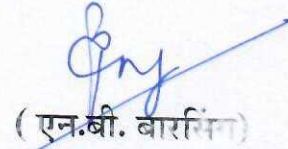 ( एन.बी. बारसिंग)